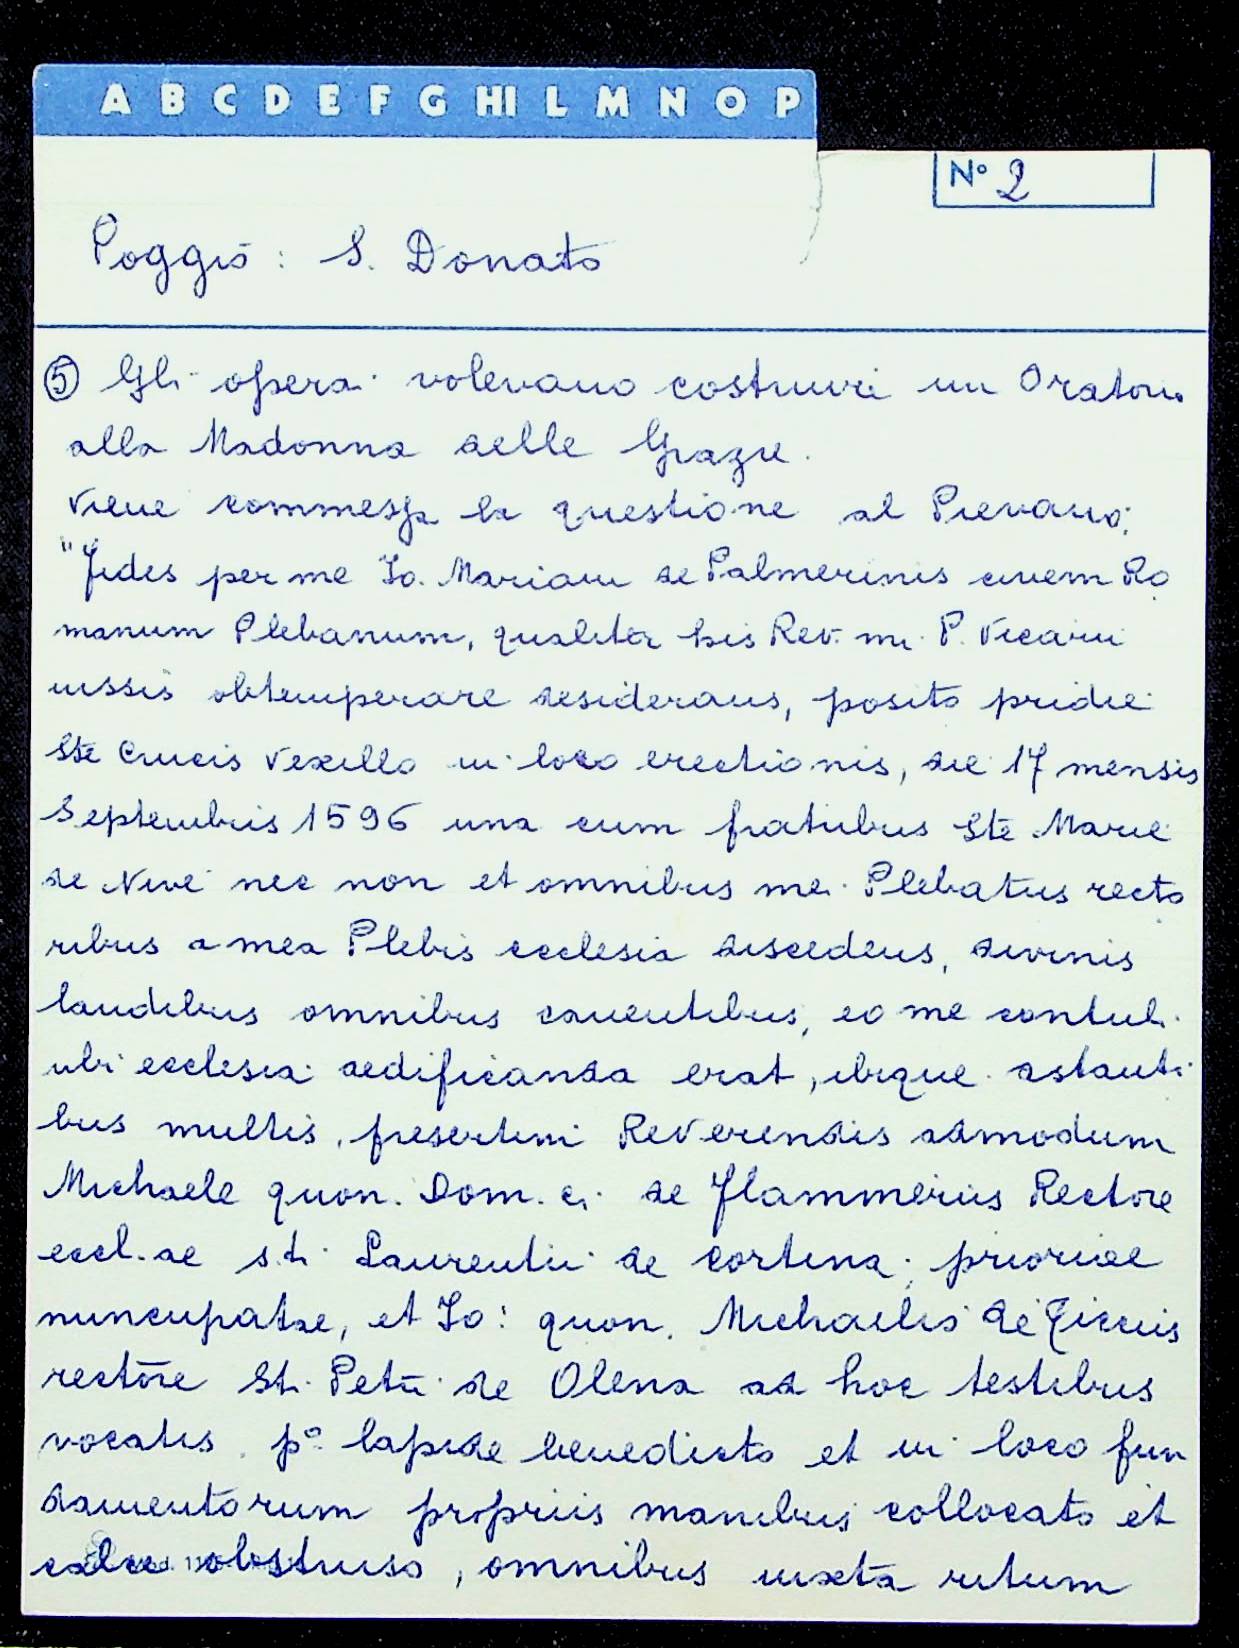 A B C D E F G HI L M N O P
N° 2
Poggio: S. Donato
⑤ Gli operai volevano costruire un Oratorio
alla Madonna delle Grazie.
Viene commessa la questione al Pievano:
"Fides per me Io. Mariam de Palmerinis civem Ro
manum Plebanum, qualiter his Rev.mi P. Vicarii
iussis obtemperare desiderans, posito pridie
Ste Crucis Vexillo in loco erectionis, die 17 mensis
Septembris 1596 una cum fratribus Ste Marie
de Nive nec non et omnibus mei Plebatus recto
ribus a mea Plebis ecclesia discedens, divinis
laudibus omnibus canentibus, eo me contuli
ubi ecclesia aedificanda erat, ibique astanti
bus multis, presertim Reverendis admodum
Michaele quon. Dom.ci de Flammeriis Rectore
eccl.ae s.ti Laurentii de Cortina, prioriae
nuncupatae, et Io: quon. Michaelis de Ticciis
rectore Sti Petri de Olena ad hoc testibus
vocatis, p° lapide benedicto et in loco fun
damentorum propriis manibus collocato et
calce obstruso, omnibus iuxta ritum